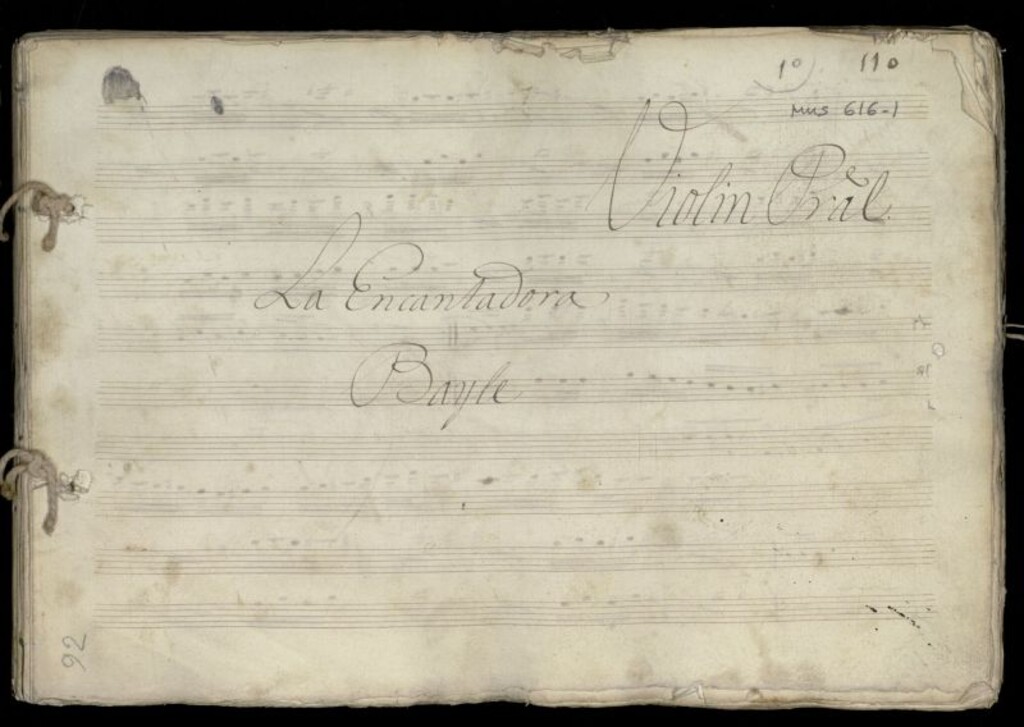 1º 110
Mus 616-1
Violin Prãl.
La Encantadora
Bayle
92